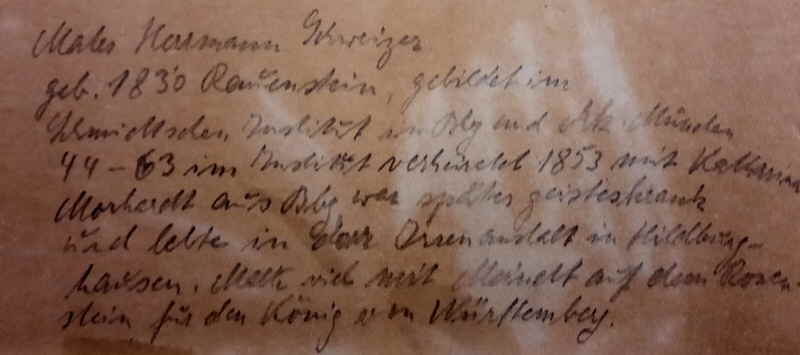 Maler Herrmann Schweizer
geb. 1830 Rauenstein, gebildet im
Schmidtschen Institut in Bbg und Ak. München
44-63 im Institut verheiratet 1853 mit Katharina
Morhardt aus Bbg war später geisteskrank
und lebte in der Irrenanstalt in Hildburg-
hausen. Malte viel mit auf dem Rosen-
stein für den König von Württemberg.